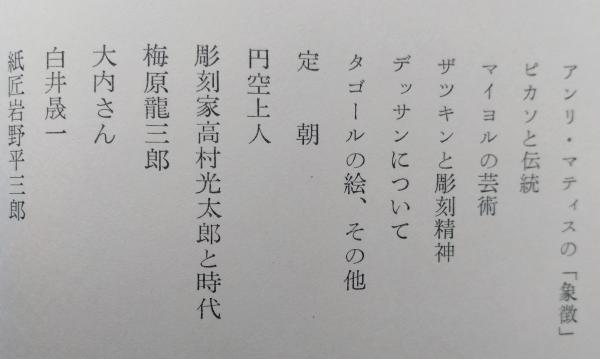 アンリ・マティスの「象徴」
ピカソと伝統
マイヨルの芸術
ザツキンと彫刻精神
デッサンについて
タゴールの絵、その他
定朝
円空上人
彫刻家高村光太郎と時代
梅原龍三郎
大内さん
白井晟一
紙匠岩野平三郎